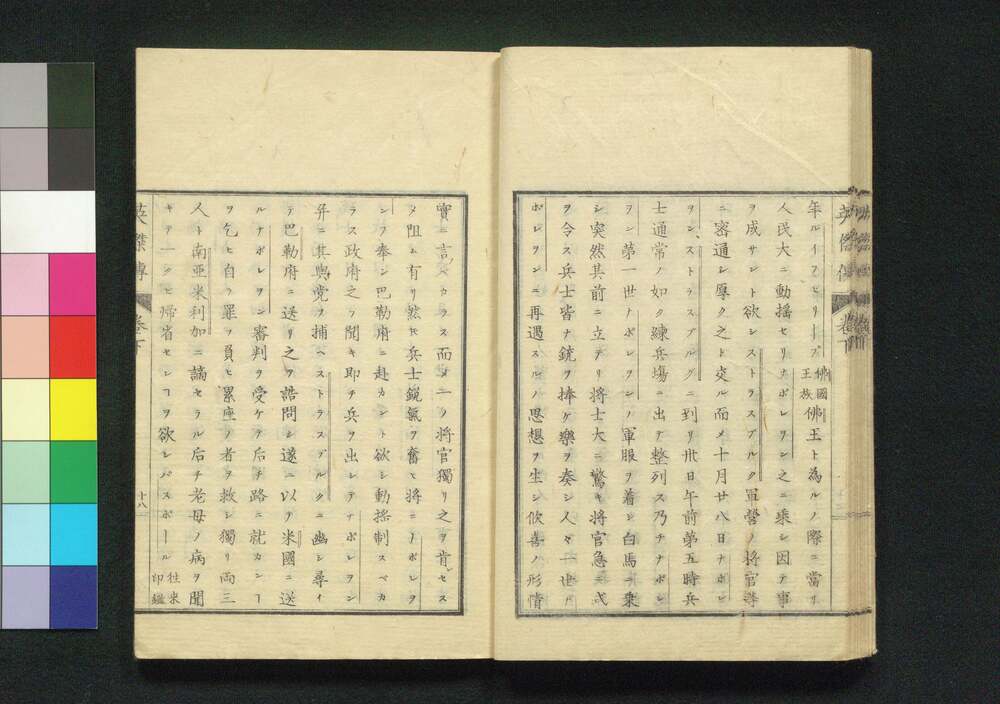 年ルイフヒリープ佛國王族佛王ト為ルノ際ニ當リ
人民大ニ動揺セリナポレヲン之ニ乗シ因テ事
ヲ成サント欲シストラスブルク軍營ノ将官等
ニ密通シ厚ク之ト交ル而メ十月廿八日ナポレ
ヲンストラスブルグニ到リ卅日午前第五時兵
士通常ノ如ク練兵場ニ出テ整列ス乃チナポレ
ヲン第一世ノポレヲンノ軍服ヲ着シ白馬ニ乗
シ突然其前ニ立テリ将士大ニ驚キ将官急ニ式
ヲ令ス兵士皆ナ銃ヲ捧ケ樂ヲ奏シ人々一世ナ
ポレヲンニ再遇スルノ思想ヲ生シ欣喜ノ形情
英傑傳 巻下
實ニ言ヘカラス而メ一ノ将官獨リ之ヲ肯セス
メ阻ム有リ然𪜈兵士鋭氣ヲ奮ヒ将ニナポレヲ
ンヲ奉シ巴勒府ニ赴カント欲シ動揺制スベカ
ラス政府之ヲ聞キ即チ兵ヲ出シテナポレヲン
并ニ其與党ヲ捕ヘストラスブルクニ幽シ尋イ
テ巴勒府ニ送リ之ヲ詰問シ遂ニ以テ米國ニ送
ルナポレヲン審判ヲ受ケテ后チ路ニ就カンヿ
ヲ乞ヒ自ラ罪ヲ負ヒ累座ノ者ヲ救シ獨リ両三
人ト南亜米利加ニ謫セラル后チ老母ノ病ヲ聞
キテ一タヒ帰省センヿヲ欲レパスポール往来印鑑
英傑傳 巻下 十八